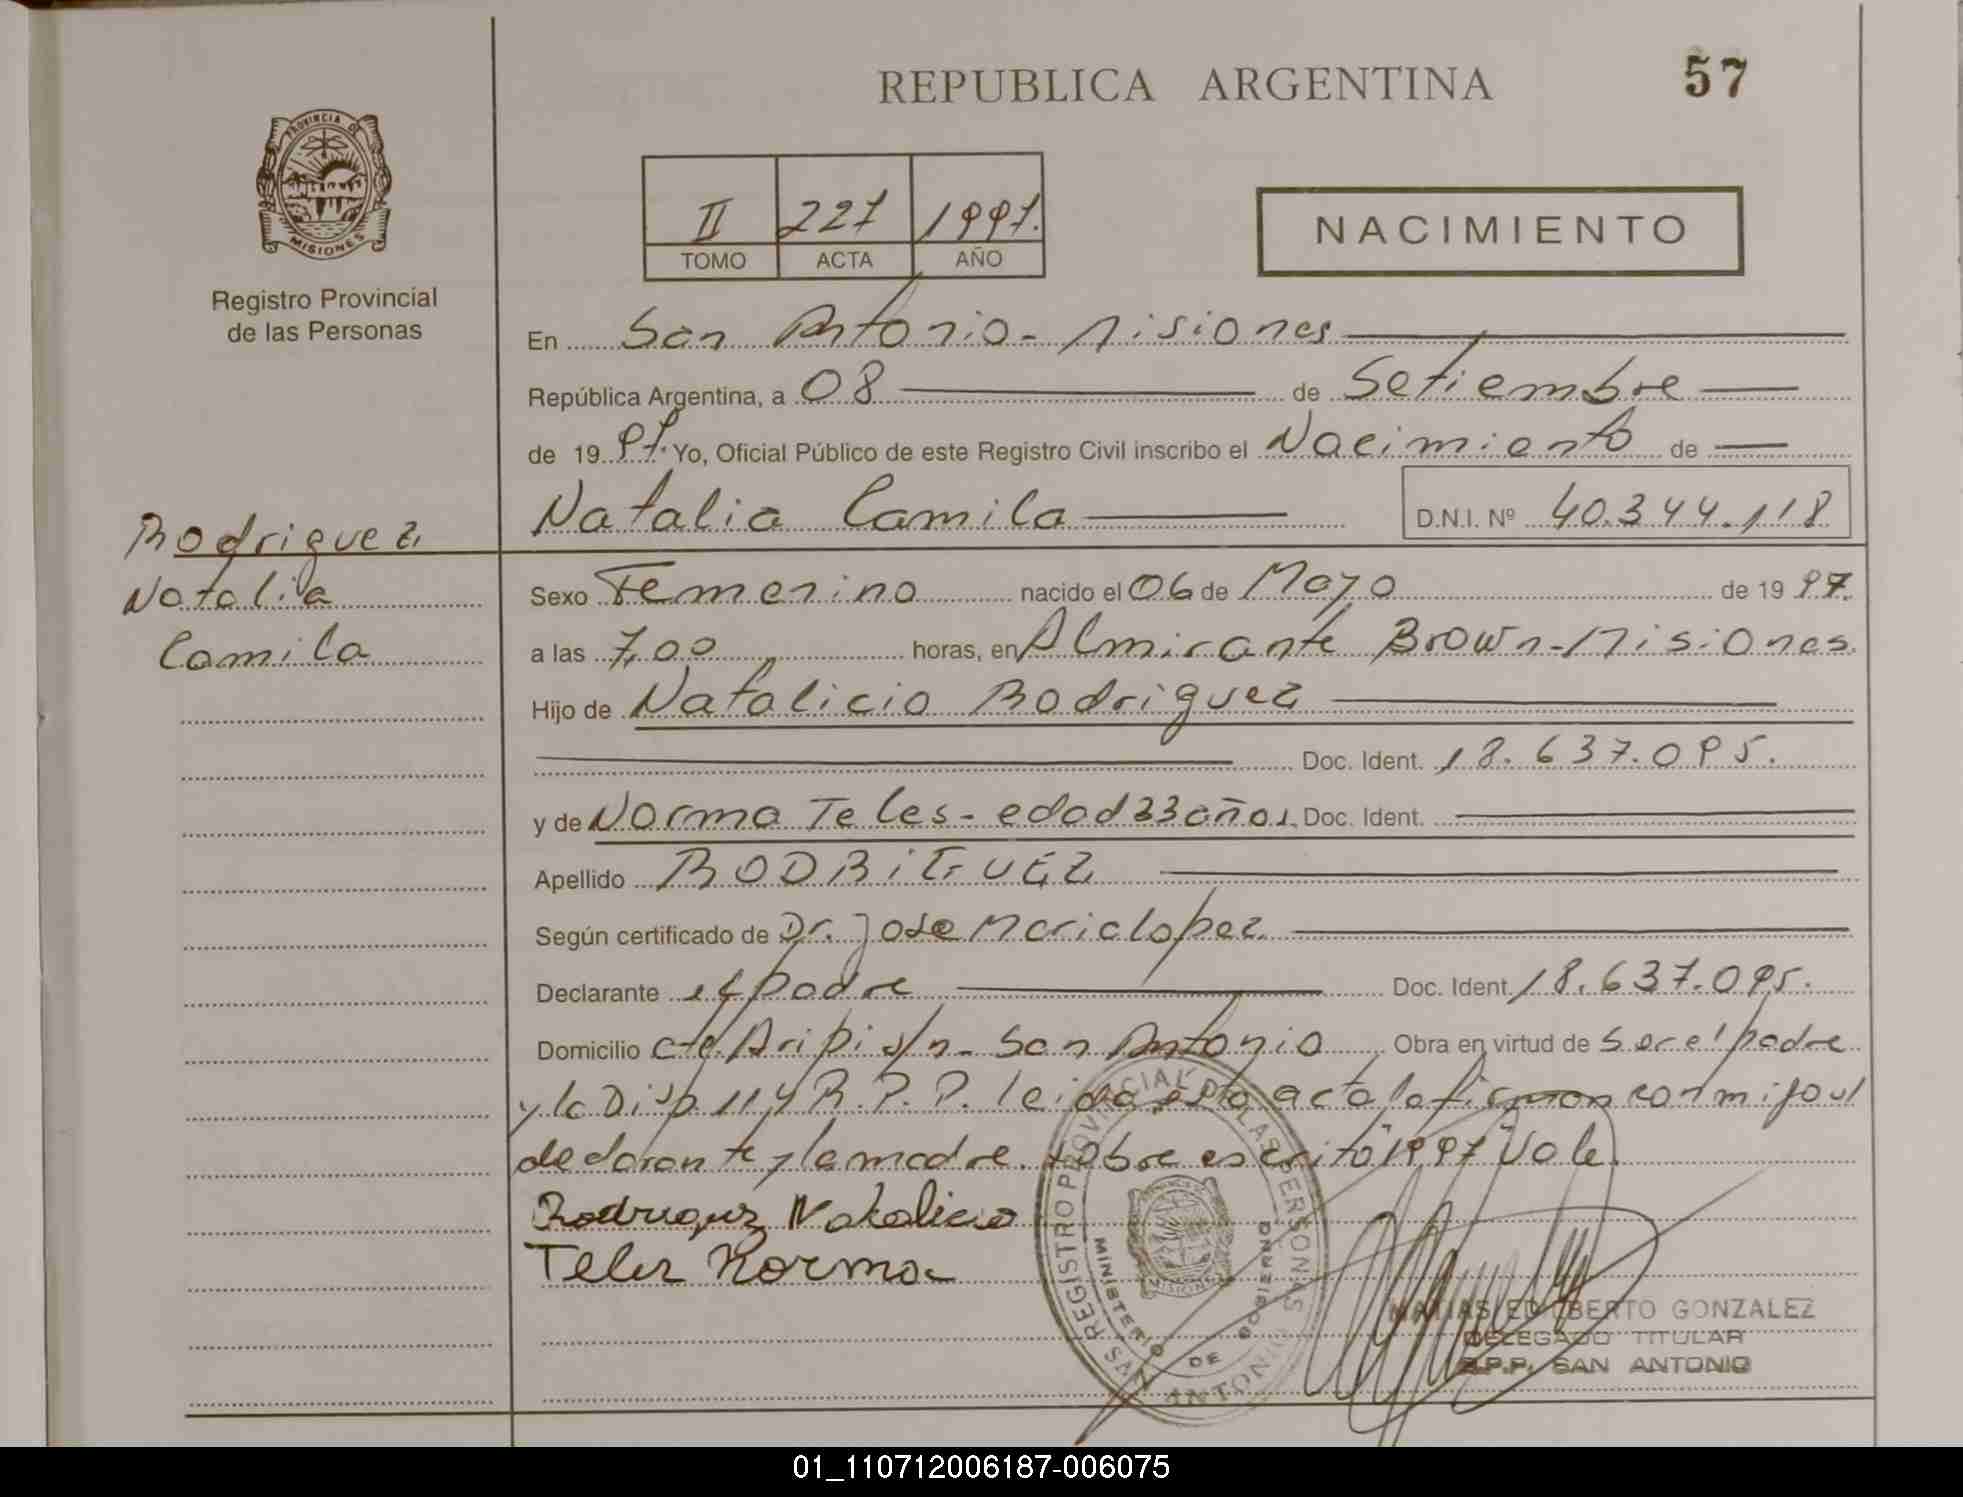 REPUBLICA ARGENTINA
57
PROVINCIA DE
MISIONES
Registro Provincial
de las Personas
II 227 1997.
TOMO ACTA AÑO
NACIMIENTO
En San Antonio - Misiones
República Argentina, a 08 de Setiembre
de 1997. Yo, Oficial Público de este Registro Civil inscribo el Nacimiento de
Natalia Camila D.N.I. Nº 40.344.118
Rodriguez
Natalia
Camila
Sexo Femenino nacido el 06 de Mayo de 1997.
a las 7,00 horas, en Almirante Brown - Misiones.
Hijo de Natalicio Rodriguez
Doc. Ident. 18.637.095.
y de Norma Teles - edad 33 años. Doc. Ident.
Apellido RODRIGUEZ
Según certificado de Dr. Jose Maria Lopez
Declarante el padre Doc. Ident. 18.637.095.
Domicilio Aripi s/n - San Antonio Obra en virtud de ser el padre
y la Disp 114 R.P.P. leida esta acta la firman conmigo el
declarante y la madre. sobre escrito "1997" Vale.
Rodriguez Natalicio
Teles Norma
REGISTRO PROVINCIAL DE LAS PERSONAS
MINISTERIO DE GOBIERNO
MISIONES
SAN ANTONIO
MATIAS EDILBERTO GONZALEZ
DELEGADO TITULAR
R.P.P. SAN ANTONIO
01_110712006187-006075